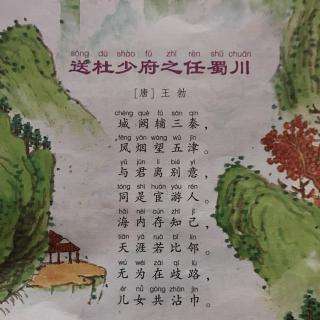 sòng dù shào fǔ zhī rèn shǔ chuān
送杜少府之任蜀川
［唐］王勃
chéng què fǔ sān qín
城阙辅三秦，
fēng yān wàng wǔ jīn
风烟望五津。
yǔ jūn lí bié yì
与君离别意，
tóng shì huàn yóu rén
同是宦游人。
hǎi nèi cún zhī jǐ
海内存知己，
tiān yá ruò bǐ lín
天涯若比邻。
wú wéi zài qí lù
无为在歧路，
ér nǚ gòng zhān jīn
儿女共沾巾。